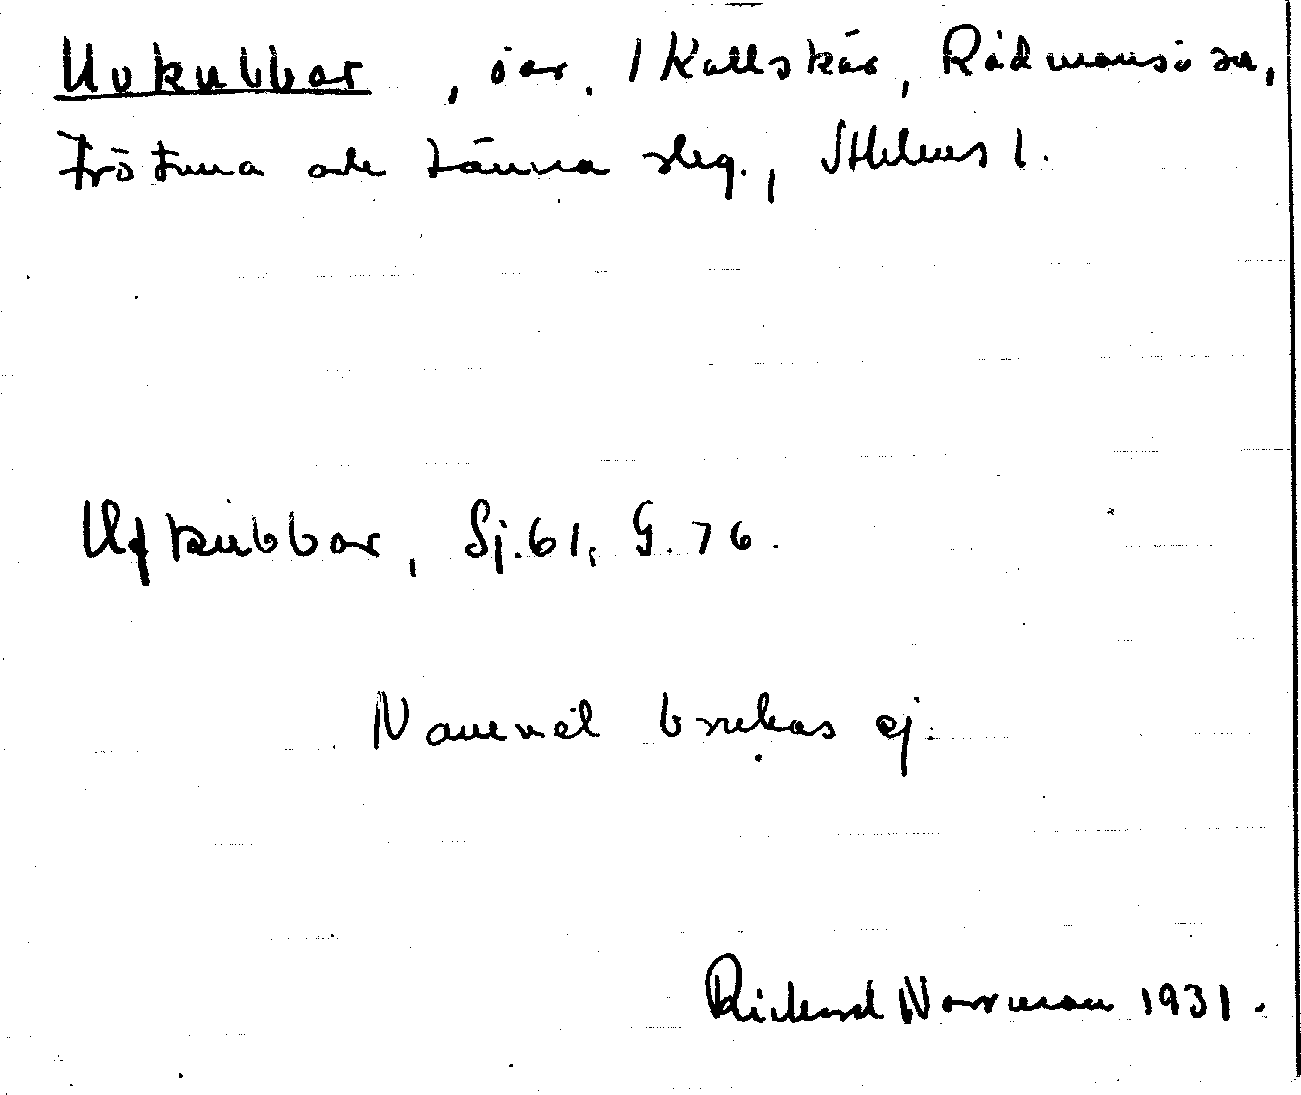 Uvkubbar, öar, 1 Kallskär, Rådmansö sn,
Frötuna och Länna sleg., Sthlms l.
Ufkubbar, Sj. 61, G. 76.
Namnet brukas ej.
Rickard Norrman 1931.